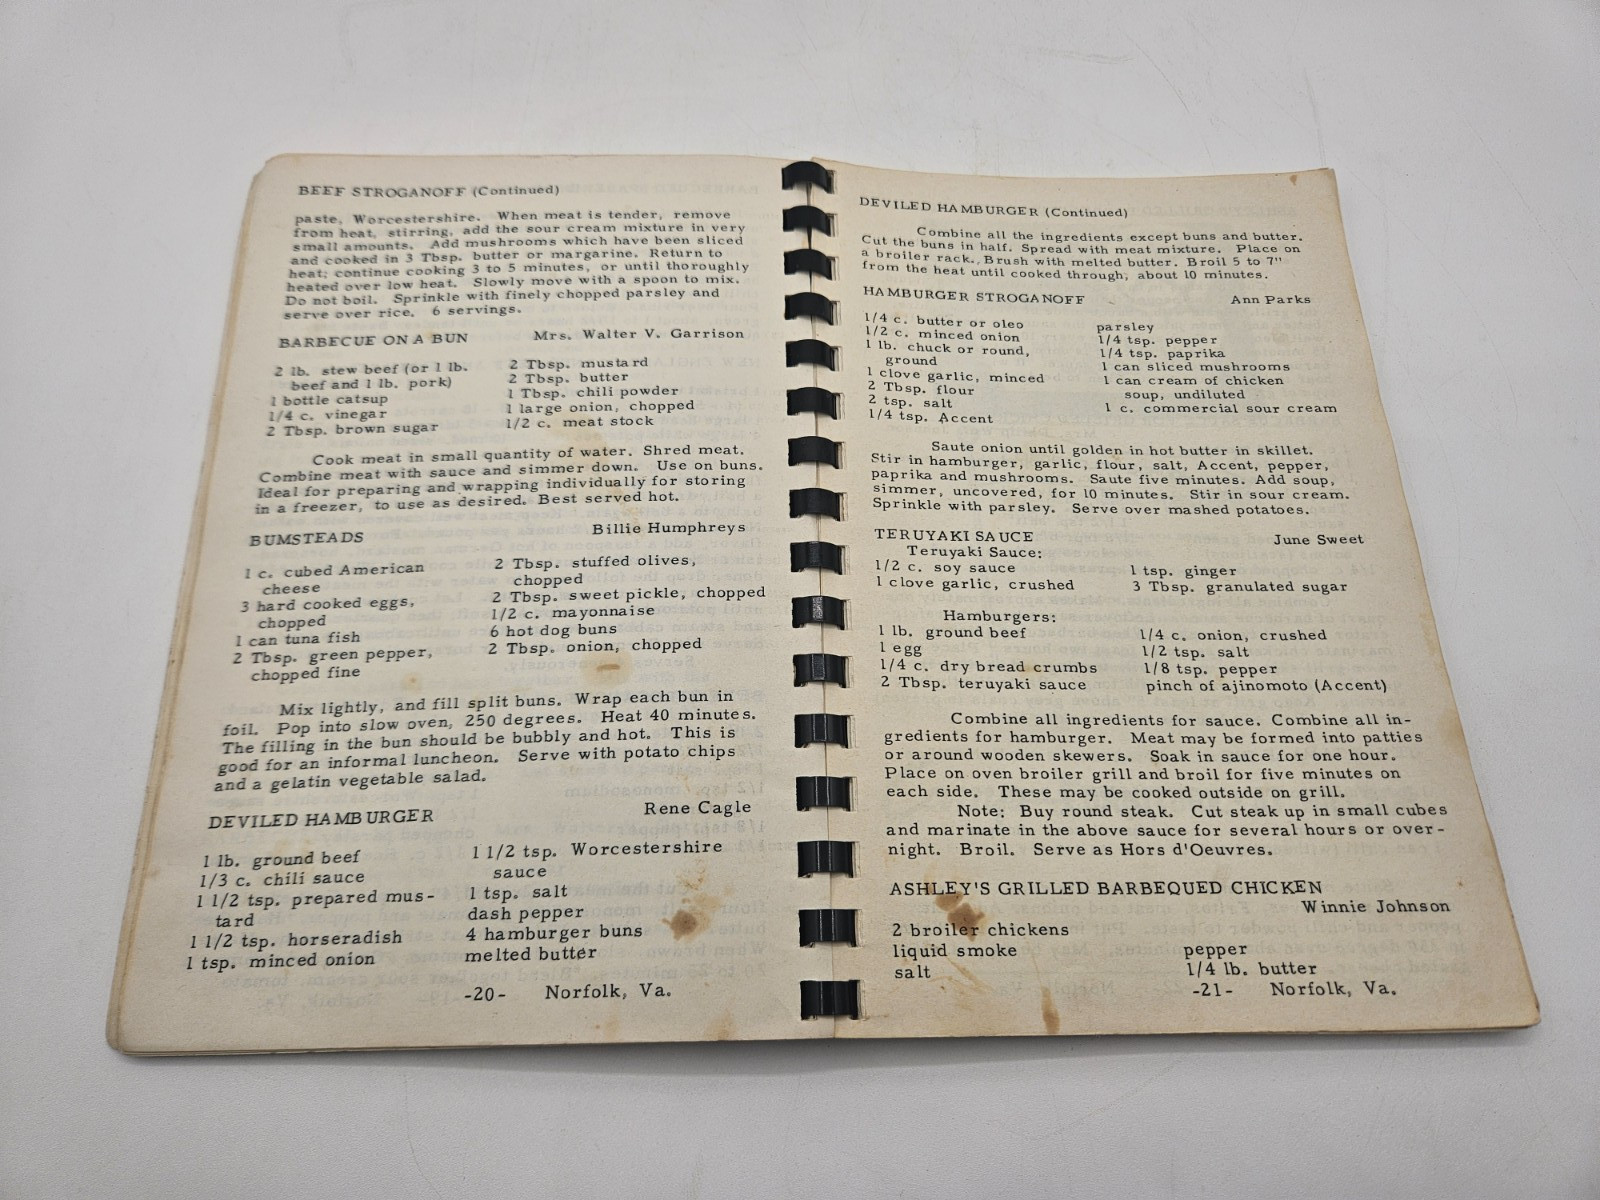 BEEF STROGANOFF (Continued)
paste, Worcestershire. When meat is tender, remove
from heat, stirring, add the sour cream mixture in very
small amounts. Add mushrooms which have been sliced
and cooked in 3 Tbsp. butter or margarine. Return to
heat; continue cooking 3 to 5 minutes, or until thoroughly
heated over low heat. Slowly move with a spoon to mix.
Do not boil. Sprinkle with finely chopped parsley and
serve over rice. 6 servings.
BARBECUE ON A BUN Mrs. Walter V. Garrison
2 lb. stew beef (or 1 lb.
beef and 1 lb. pork)
1 bottle catsup
1/4 c. vinegar
2 Tbsp. brown sugar
2 Tbsp. mustard
2 Tbsp. butter
1 Tbsp. chili powder
1 large onion, chopped
1/2 c. meat stock
Cook meat in small quantity of water. Shred meat.
Combine meat with sauce and simmer down. Use on buns.
Ideal for preparing and wrapping individually for storing
in a freezer, to use as desired. Best served hot.
BUMSTEADS Billie Humphreys
1 c. cubed American
cheese
3 hard cooked eggs,
chopped
1 can tuna fish
2 Tbsp. green pepper,
chopped fine
2 Tbsp. stuffed olives,
chopped
2 Tbsp. sweet pickle, chopped
1/2 c. mayonnaise
6 hot dog buns
2 Tbsp. onion, chopped
Mix lightly, and fill split buns. Wrap each bun in
foil. Pop into slow oven, 250 degrees. Heat 40 minutes.
The filling in the bun should be bubbly and hot. This is
good for an informal luncheon. Serve with potato chips
and a gelatin vegetable salad.
DEVILED HAMBURGER Rene Cagle
1 lb. ground beef
1/3 c. chili sauce
1 1/2 tsp. prepared mus-
tard
1 1/2 tsp. horseradish
1 tsp. minced onion
1 1/2 tsp. Worcestershire
sauce
1 tsp. salt
dash pepper
4 hamburger buns
melted butter
-20- Norfolk, Va.
DEVILED HAMBURGER (Continued)
Combine all the ingredients except buns and butter.
Cut the buns in half. Spread with meat mixture. Place on
a broiler rack. Brush with melted butter. Broil 5 to 7"
from the heat until cooked through, about 10 minutes.
HAMBURGER STROGANOFF Ann Parks
1/4 c. butter or oleo
1/2 c. minced onion
1 lb. chuck or round,
ground
1 clove garlic, minced
2 Tbsp. flour
2 tsp. salt
1/4 tsp. Accent
parsley
1/4 tsp. pepper
1/4 tsp. paprika
1 can sliced mushrooms
1 can cream of chicken
soup, undiluted
1 c. commercial sour cream
Saute onion until golden in hot butter in skillet.
Stir in hamburger, garlic, flour, salt, Accent, pepper,
paprika and mushrooms. Saute five minutes. Add soup,
simmer, uncovered, for 10 minutes. Stir in sour cream.
Sprinkle with parsley. Serve over mashed potatoes.
TERUYAKI SAUCE June Sweet
Teruyaki Sauce:
1/2 c. soy sauce
1 clove garlic, crushed
1 tsp. ginger
3 Tbsp. granulated sugar
Hamburgers:
1 lb. ground beef
1 egg
1/4 c. dry bread crumbs
2 Tbsp. teruyaki sauce
1/4 c. onion, crushed
1/2 tsp. salt
1/8 tsp. pepper
pinch of ajinomoto (Accent)
Combine all ingredients for sauce. Combine all in-
gredients for hamburger. Meat may be formed into patties
or around wooden skewers. Soak in sauce for one hour.
Place on oven broiler grill and broil for five minutes on
each side. These may be cooked outside on grill.
Note: Buy round steak. Cut steak up in small cubes
and marinate in the above sauce for several hours or over-
night. Broil. Serve as Hors d'Oeuvres.
ASHLEY'S GRILLED BARBEQUED CHICKEN
Winnie Johnson
2 broiler chickens
liquid smoke
salt
pepper
1/4 lb. butter
-21- Norfolk, Va.